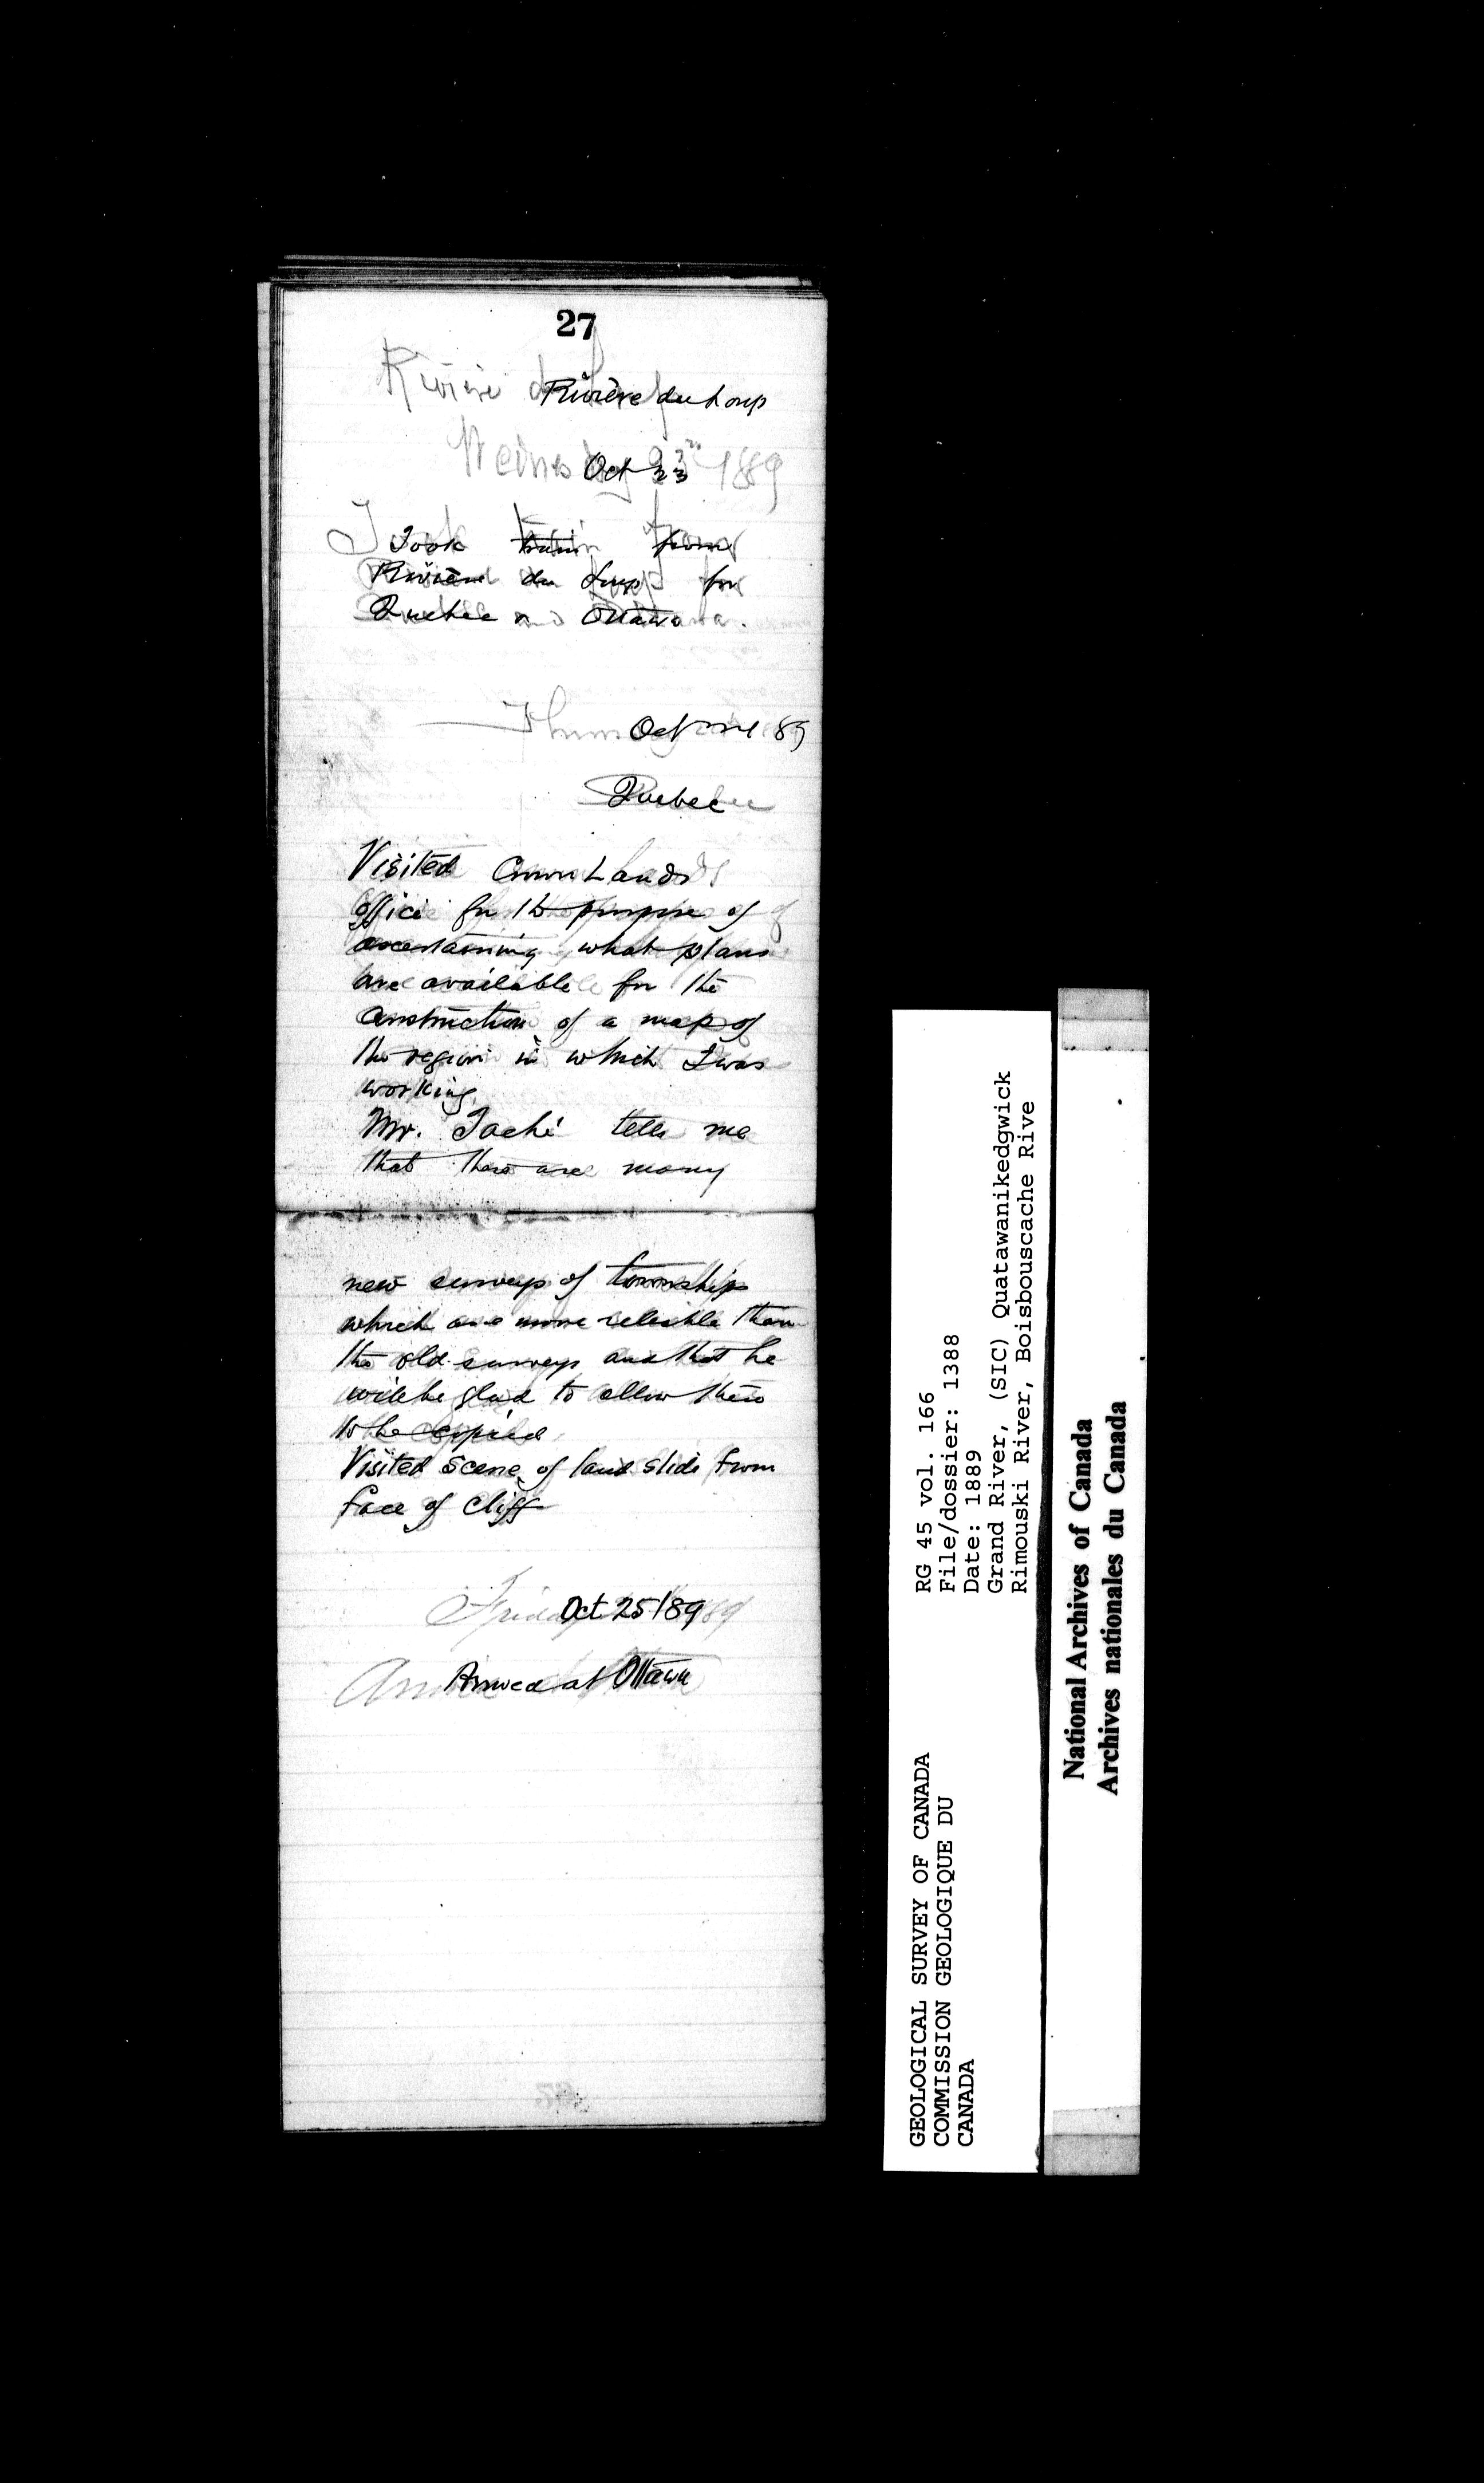 27
Rivière du Loup
Oct 23
Took train from
Rivière du Loup for
Quebec & Ottawa
Oct 24 89
Quebec
Visited Crown Lands
office for the purpose of
ascertaining what plans
are available for the
construction of a map of
the region in which I was
working.
Mr. Taché tells me
that there are many
new surveys of township
which are more reliable than
the old surveys and that he
will be glad to allow them
to be copied.
Visited scene of land slide from
face of cliff
Oct 25/89
Arrived at Ottawa
GEOLOGICAL SURVEY OF CANADA
COMMISSION GEOLOGIQUE DU
CANADA
RG 45 vol. 166
File/dossier: 1388
Date: 1889
Grand River, (SIC) Quatawanikedgwick
Rimouski River, Boisbouscache Rive
National Archives of Canada
Archives nationales du Canada